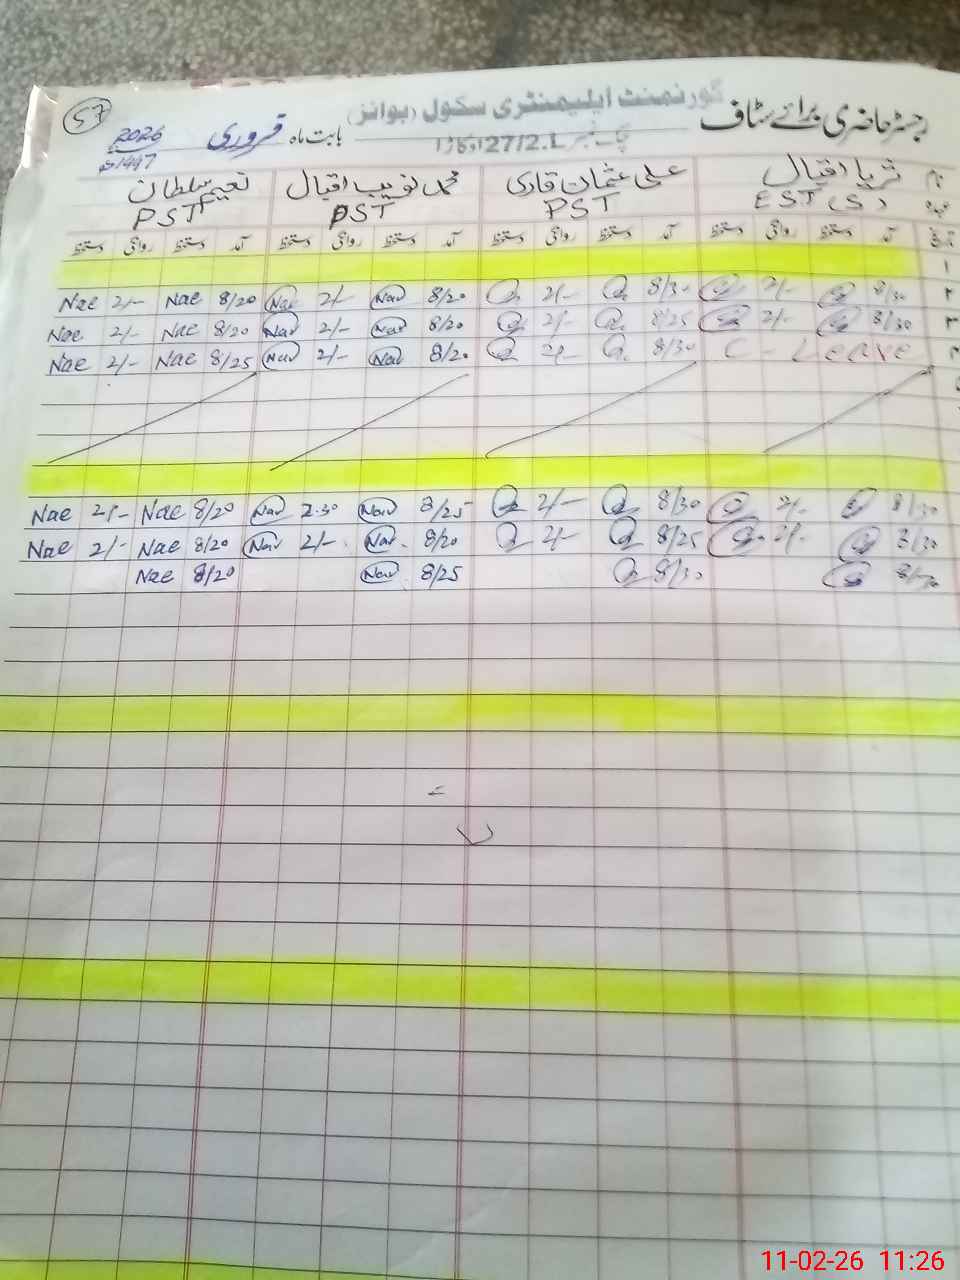 57
رجسٹر حاضری برائے سٹاف گورنمنٹ ایلیمنٹری سکول (بوائز) بابت ماہ فروری 2026
چک نمبر 27/2.L اوکاڑا 1447
نام ثریا اقبال علی عثمان قادری محمد نویب اقبال نعیم سلطان
عہدہ EST(S) PST PST PST
تاریخ آمد دستخط روانگی دستخط آمد دستخط روانگی دستخط آمد دستخط روانگی دستخط آمد دستخط روانگی دستخط
۱
Nae 2/- Nae 8/20 Nav 2/- Nav 8/20 2/- 8/30 2/- 8/30 ۲
Nae 2/- Nae 8/20 Nav 2/- Nav 8/20 2/- 8/25 2/- 8/30 ۳
Nae 2/- Nae 8/25 Nav 2/- Nav 8/20 2/- 8/30 C - Leave
Nae 2/- Nae 8/20 Nav 2.30 Nav 8/25 2/- 8/30 2/- 8/30
Nae 2/- Nae 8/20 Nav 2/- Nav 8/20 2/- 8/25 2/- 8/30
Nae 8/20 Nav 8/25 8/30
11-02-26 11:26